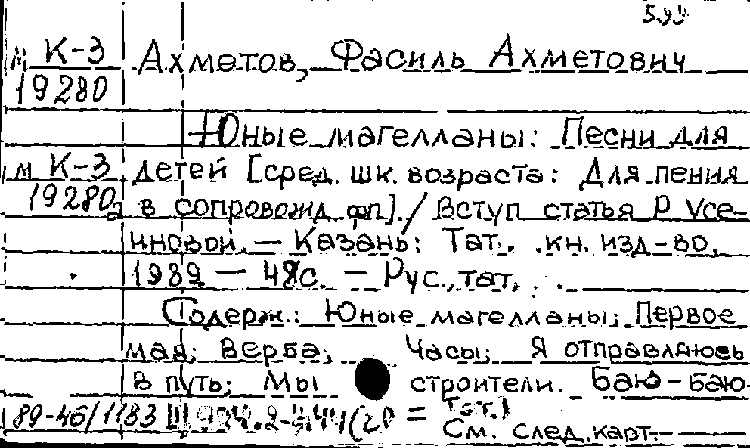 5.99
м К-3 Ахметов, Фасиль Ахметович
19280
Юные магелланы: Песни для
м К-3 детей [сред. шк. возраста: Для пения
19280а в сопровожд. фп]. / Вступ статья Р Усе-
иновой. — Казань: Тат. кн. изд-во,
1989 — 48с. — Рус., тат.
Содерж.: Юные магелланы; Первое
мая; Верба; Часы; Я отправляюсь
в путь; Мы строители. Баю-баю
89-46/1183
= тат.)
См. след. карт.